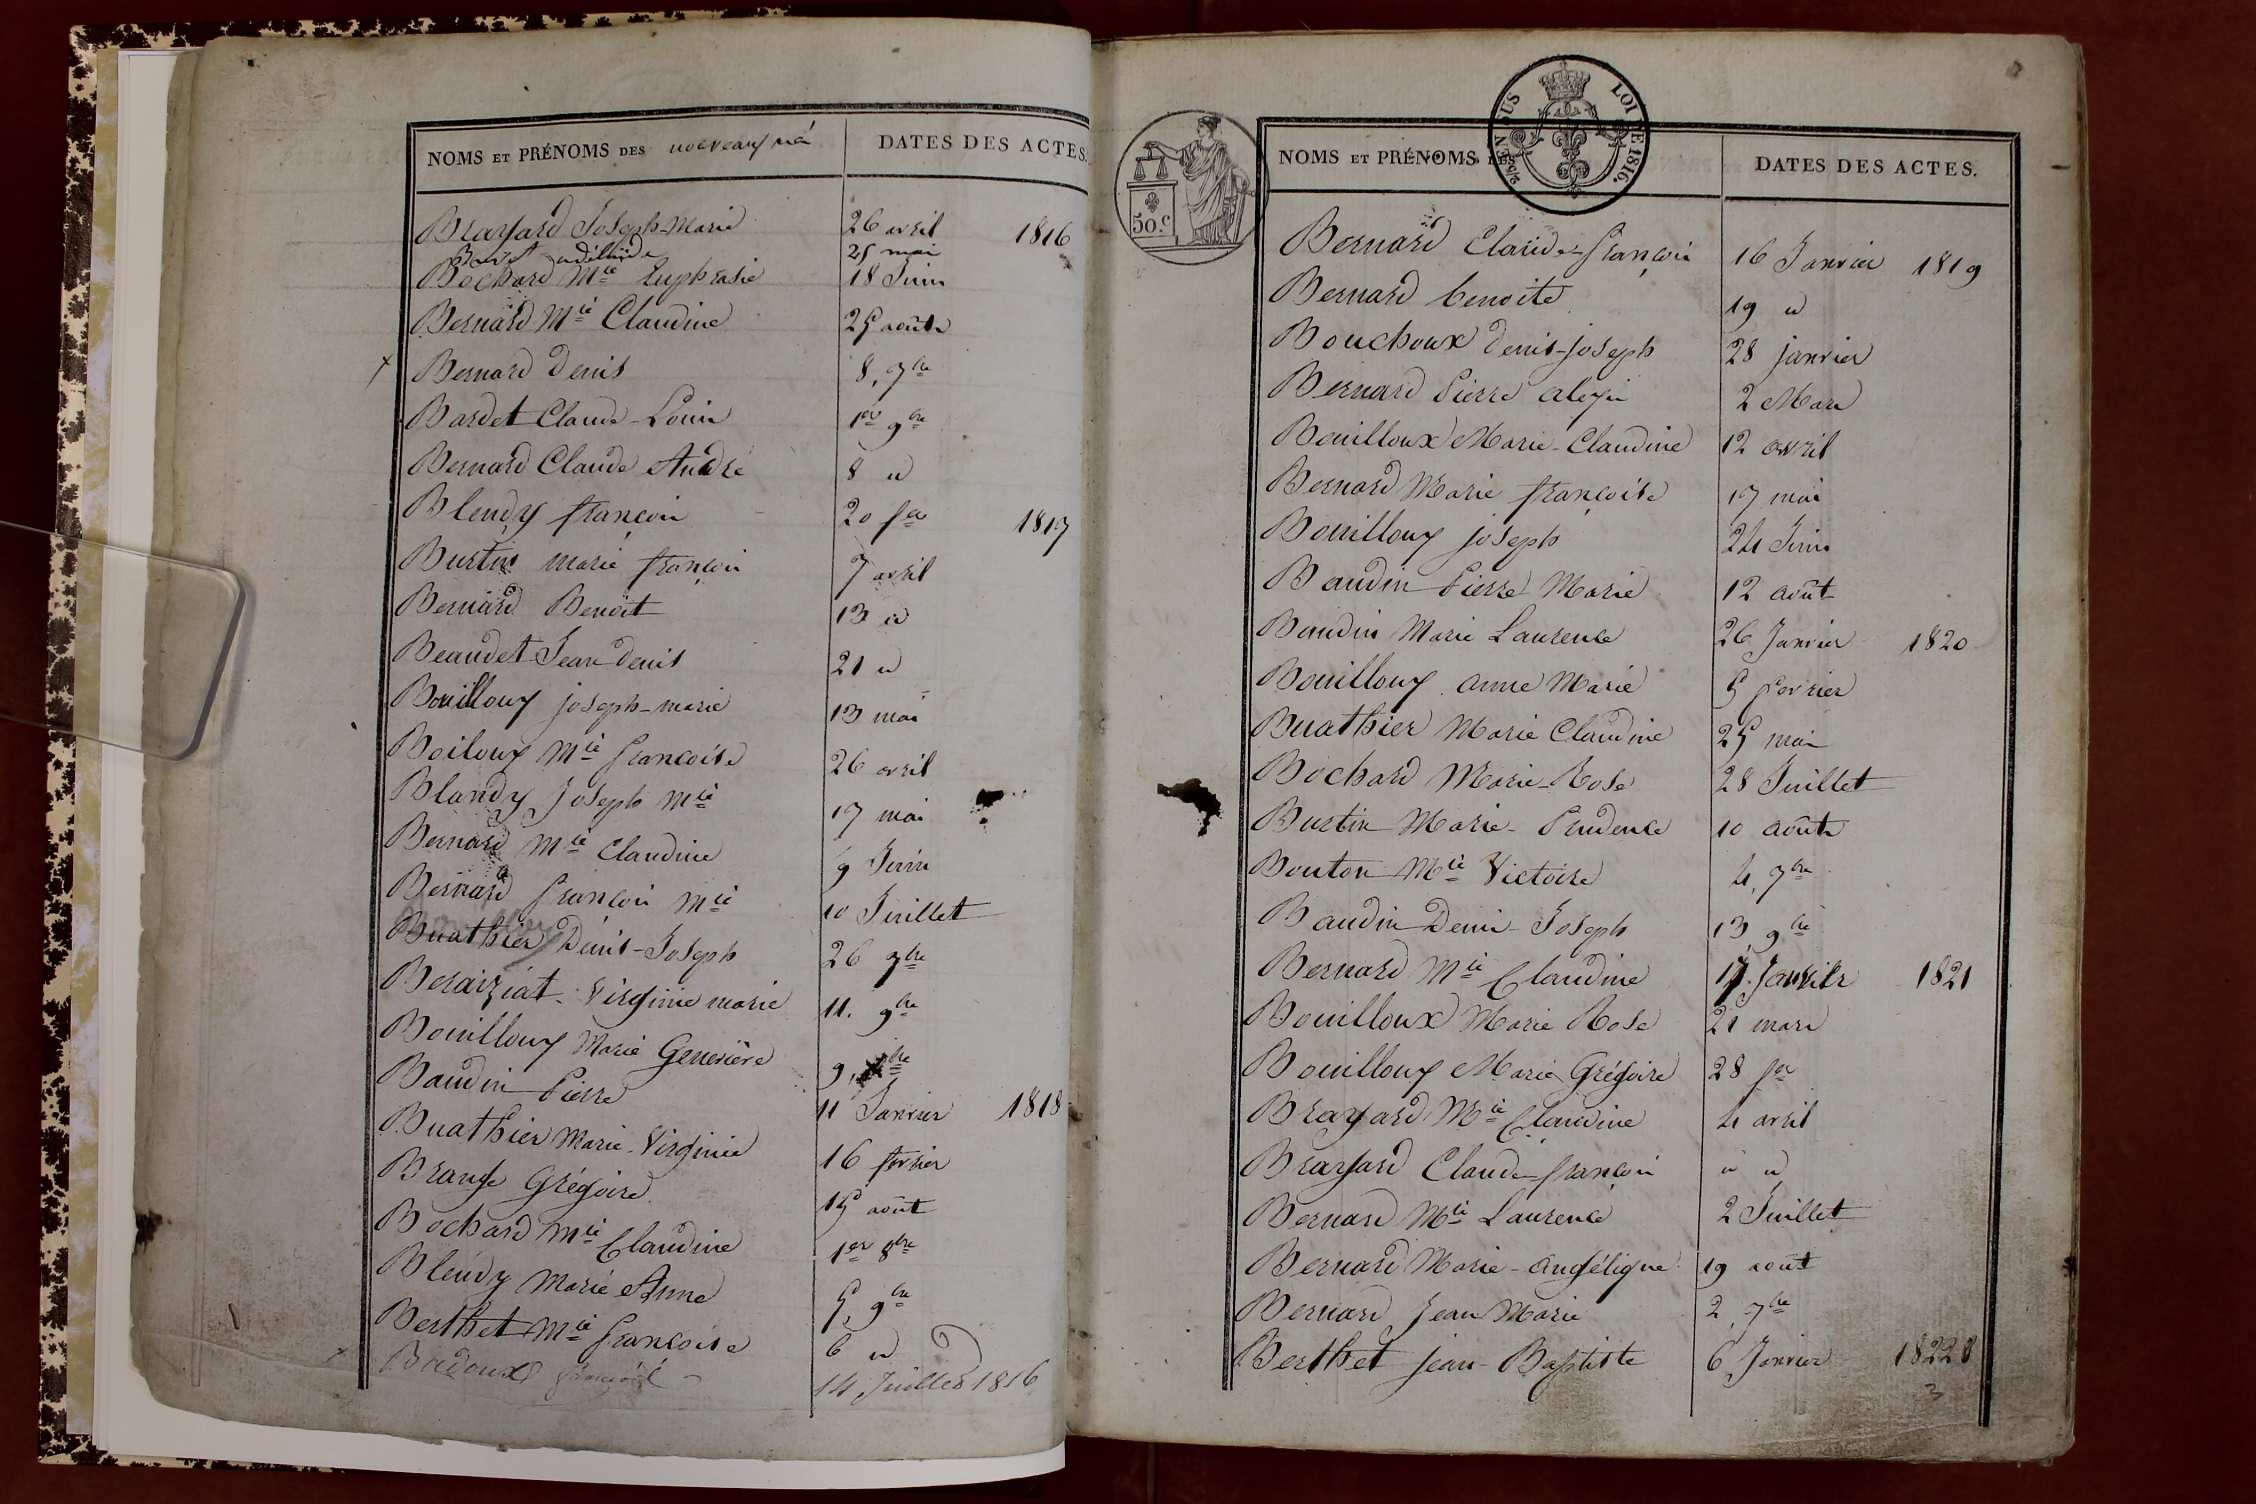 NOMS ET PRÉNOMS DES nouveaux né DATES DES ACTES.
Brayard Joseph-Marie 26 avril 1816
adélaïde 25 mai
Bochard Mie Euphrasie 18 Juin
Bernard Mie Claudine 25 août
Bernard Denis 8, 7bre
Bardet Claude-Louis 1er 9bre
Bernard Claude André 8 id
Blendy françois 20 fer 1817
Burtin marie françois 7 avril
Bernard Benoit 13 id
Beaudet Jean Denis 21 id
Bouilloux joseph-marie 13 mai
Boiloux Mie françoise 26 avril
Blandy Joseph Mie 17 mai
Bernard Mie Claudine 9 Juin
Bernard françois Mie 10 Juillet
Buathier Denis-Joseph 26 7bre
Beraiziat Virginie marie 11. 9bre
Bouilloux Marie Geneviève 9, bre
Baudin Pierre 11 Janvier 1818
Buathier Marie Virginie 16 fevrier
Brange Grégoire 15 août
Bochard Mie Claudine 1er 8bre
Blendy Marie Anne 5, 9bre
Berthet Mie françoise 6 id
Badoux 14 Juillet 1816
LOI DE 1816.
50.c
NOMS ET PRÉNOMS DES DATES DES ACTES.
Bernard Claude françois 16 Janvier 1819
Bernard benoite 19 id
Bouchoux Denis-joseph 28 janvier
Bernard Pierre alexis 2 Mars
Bouilloux Marie-Claudine 12 avril
Bernard Marie françoise 17 mai
Bouilloux joseph 24 Juin
Baudin Pierre Marie 12 août
Baudin Marie Laurence 26 Janvier 1820
Bouilloux anne Marie 5 fevrier
Buathier Marie Claudine 25 mai
Bochard Marie-Rose 28 Juillet
Burtin Marie-Prudence 10 août
Bouton Mie Victoire 4, 7bre
Baudin Denis-Joseph 13 9bre
Bernard Mie Claudine 17 Janvier 1821
Bouilloux Marie Rose 21 mars
Bouilloux Marie Grégoire 28 fer
Brayard Mie Claudine 4 avril
Brayard Claude-françois id id
Bernard Mie Laurence 2 Juillet
Bernard Marie-angélique 19 août
Bernard Jean Marie 2, 7bre
Berthet jean-Baptiste 6 Janvier 1822
3